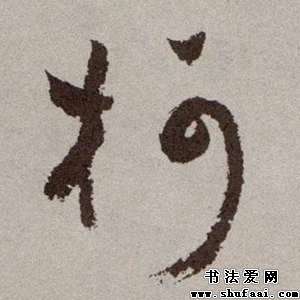 柯
书法爱网
www.shufaai.com